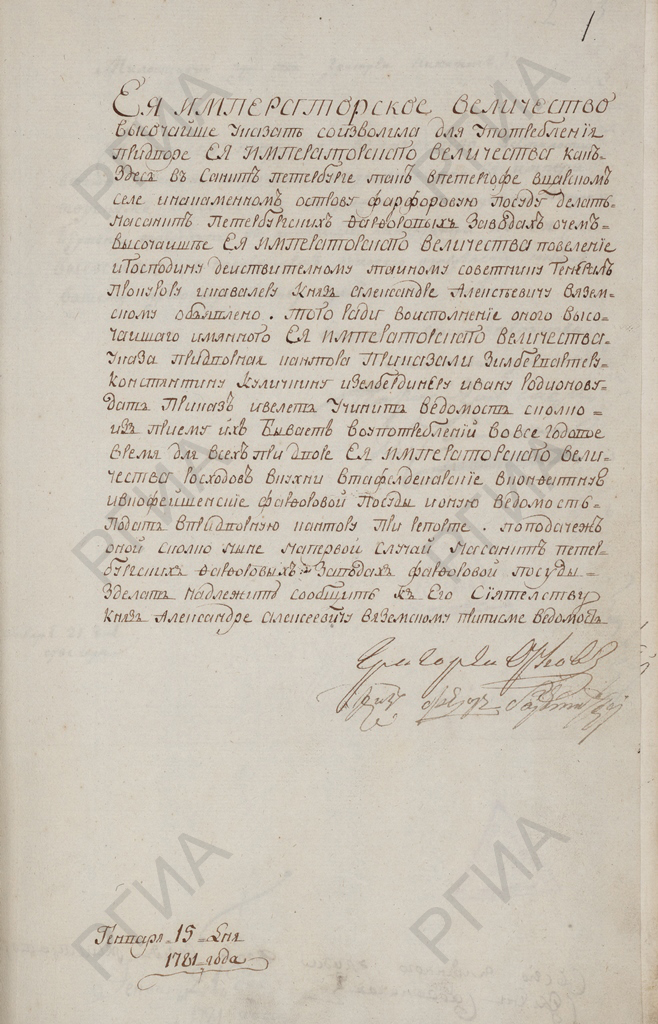 1
Ея императорское величество
высочайше указать соизволила для употребления
придворе ея императорскаго величества какъ=
здесь въ санктъ петербурге такъ впетергофе вцарскомъ
селе инакаменномъ острову фарфоровую посуду делать
насанктъ петербургскихъ фарфоровыхъ заводахъ очемъ=
высочаишъе ея императорскаго величества повеление
игосподину действительному тайному советнику генералъ
прокурору икавалеру князь александре алексеевичу вязем=
скому объявлено. того ради воисполнение оного высо=
чаишаго имянного ея императорскаго величества=
указа придворная кантора приказали зилбервартеру=
константину куличкину изелбердинеру ивану родионову=
дать приказъ ивелеть учинить ведомость сполко=
изъ приему ихъ бываетъ воупотреблений во все годовое
время для всехъ при дворе ея императорскаго вели=
чества росходовъ вкухни втафелдекарские вконфектную
ивкофеишенские фарфоровой посуды июную ведомость=
подать впридворную кантору при репорте. поподачежъ
оной сколко ныне напервой случай насанктъ петер=
бургскихъ фарфоровыхъ= заводахъ фарфоровой посуды=
зделать надлежитъ сообщить къ его сиятелству
князь александре алексеевичу вяземскому приписме ведомость
григорей орловъ
генваря 15 дня
1781 года
РГИА
РГИА
РГИА
РГИА
РГИА
РГИА